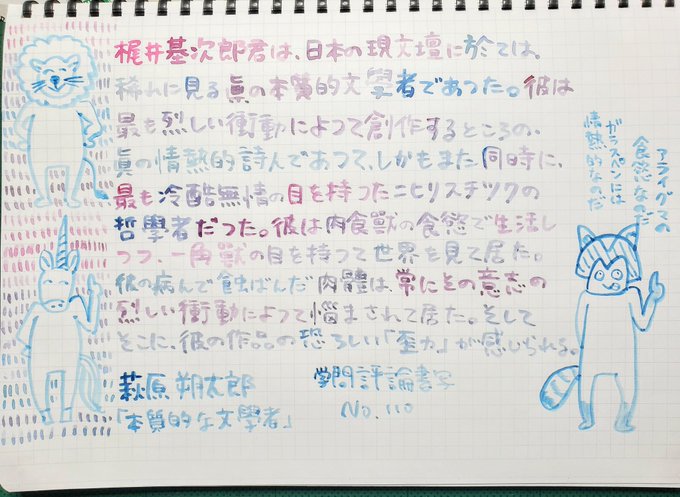 梶井基次郎君は、日本の現文壇に於ては、
稀れに見る眞の本質的文學者であつた。彼は
最も烈しい衝動によつて創作するところの、
眞の情熱的詩人であつて、しかもまた同時に、
最も冷酷無情の目を持つたニヒリスチツクの
哲學者だつた。彼は肉食獸の食慾で生活し
つつ、一角獸の目を持つて世界を見て居た。
彼の病んで蝕ばんだ肉體は、常にその意志の
烈しい衝動によつて惱まされて居た。そして
そこに、彼の作品の恐ろしい「歪力」が感じられる。
萩原朔太郎
「本質的な文學者」
学問評論書写
No.110
アライグマの
食慾なのだ
ガラスペンには
情熱的なのだ